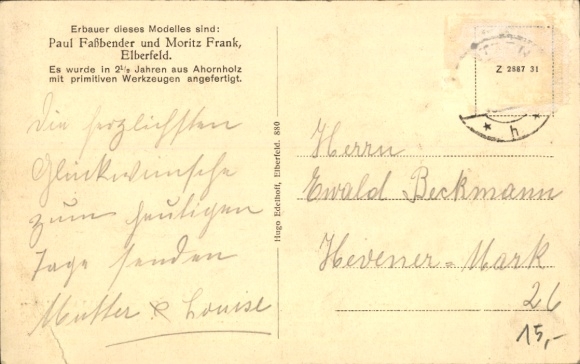 Erbauer dieses Modelles sind:
Paul Faßbender und Moritz Frank,
Elberfeld.
Es wurde in 2½ Jahren aus Ahornholz
mit primitiven Werkzeugen angefertigt.
Die herzlichsten
Glückwünsche
zum heutigen
Tage senden
Mutter & Louise
Hugo Edelhoff, Elberfeld. 880
Z 2887 31
* h *
Herrn
Ewald Beckmann
Hevener-Mark
26
15,-